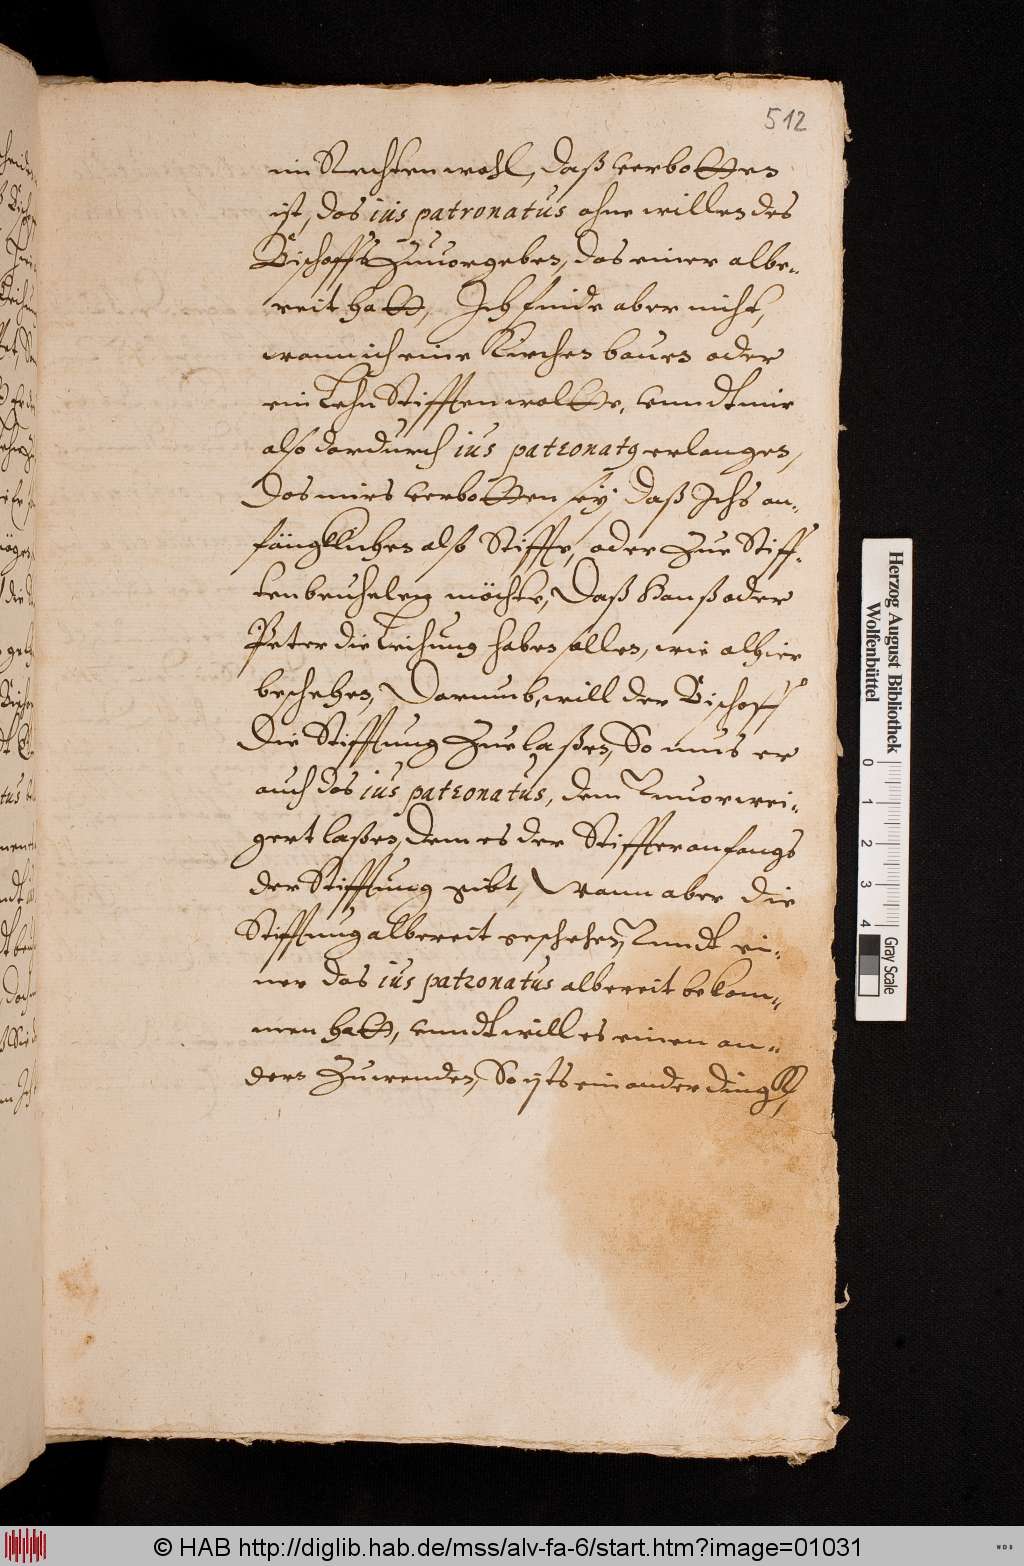 512
im Rechten wohl, daß verbotten
ist, das ius patronatus ohne willen des
Bischoffs Zuuorgeben, das einer albe-
reit hatt, Ich finde aber nicht,
wann ich eine Kirchen bauen oder
ein Lehn Stifften wolte, vnndt mir
also dardurch ius patronatus erlangen,
das mirs verbotten sey, daß Ichs an-
fängklichen also Stiffte, oder Zue Stiff-
ten beuhelen möchte, Daß Hanß oder
Peter die Leihung haben sollen, wie alhier
beschehen, Darumb, will der Bischoff
die Stifftung Zuelaßen, So mus er
auch das ius patronatus, dem Vnuorwei-
gert laßen, dem es der Stiffter anfangs
der Stifftung gibt, Wann aber die
Stifftung albereit geschehen, Vnndt ei-
ner das ius patronatus albereit bekom-
men hatt, vnndt will es einen an-
dern Zuwenden, So ists ein ander dingk,
Herzog August Bibliothek
Wolfenbüttel
0 1 2 3 4
Gray Scale
© HAB http://diglib.hab.de/mss/alv-fa-6/start.htm?image=01031
WDB